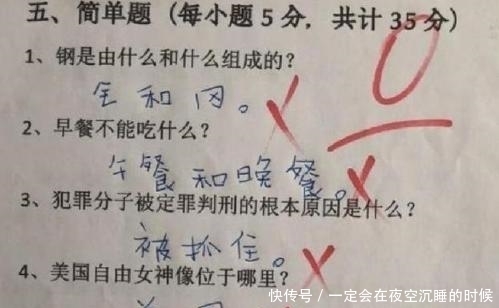 五、简单题（每小题5分，共计35分）
0
1、钢是由什么和什么组成的？
全和冈。
2、早餐不能吃什么？
午餐和晚餐。
3、犯罪分子被定罪判刑的根本原因是什么？
被抓住。
4、美国自由女神像位于哪里？
快传号／一定会在夜空沉睡的时候